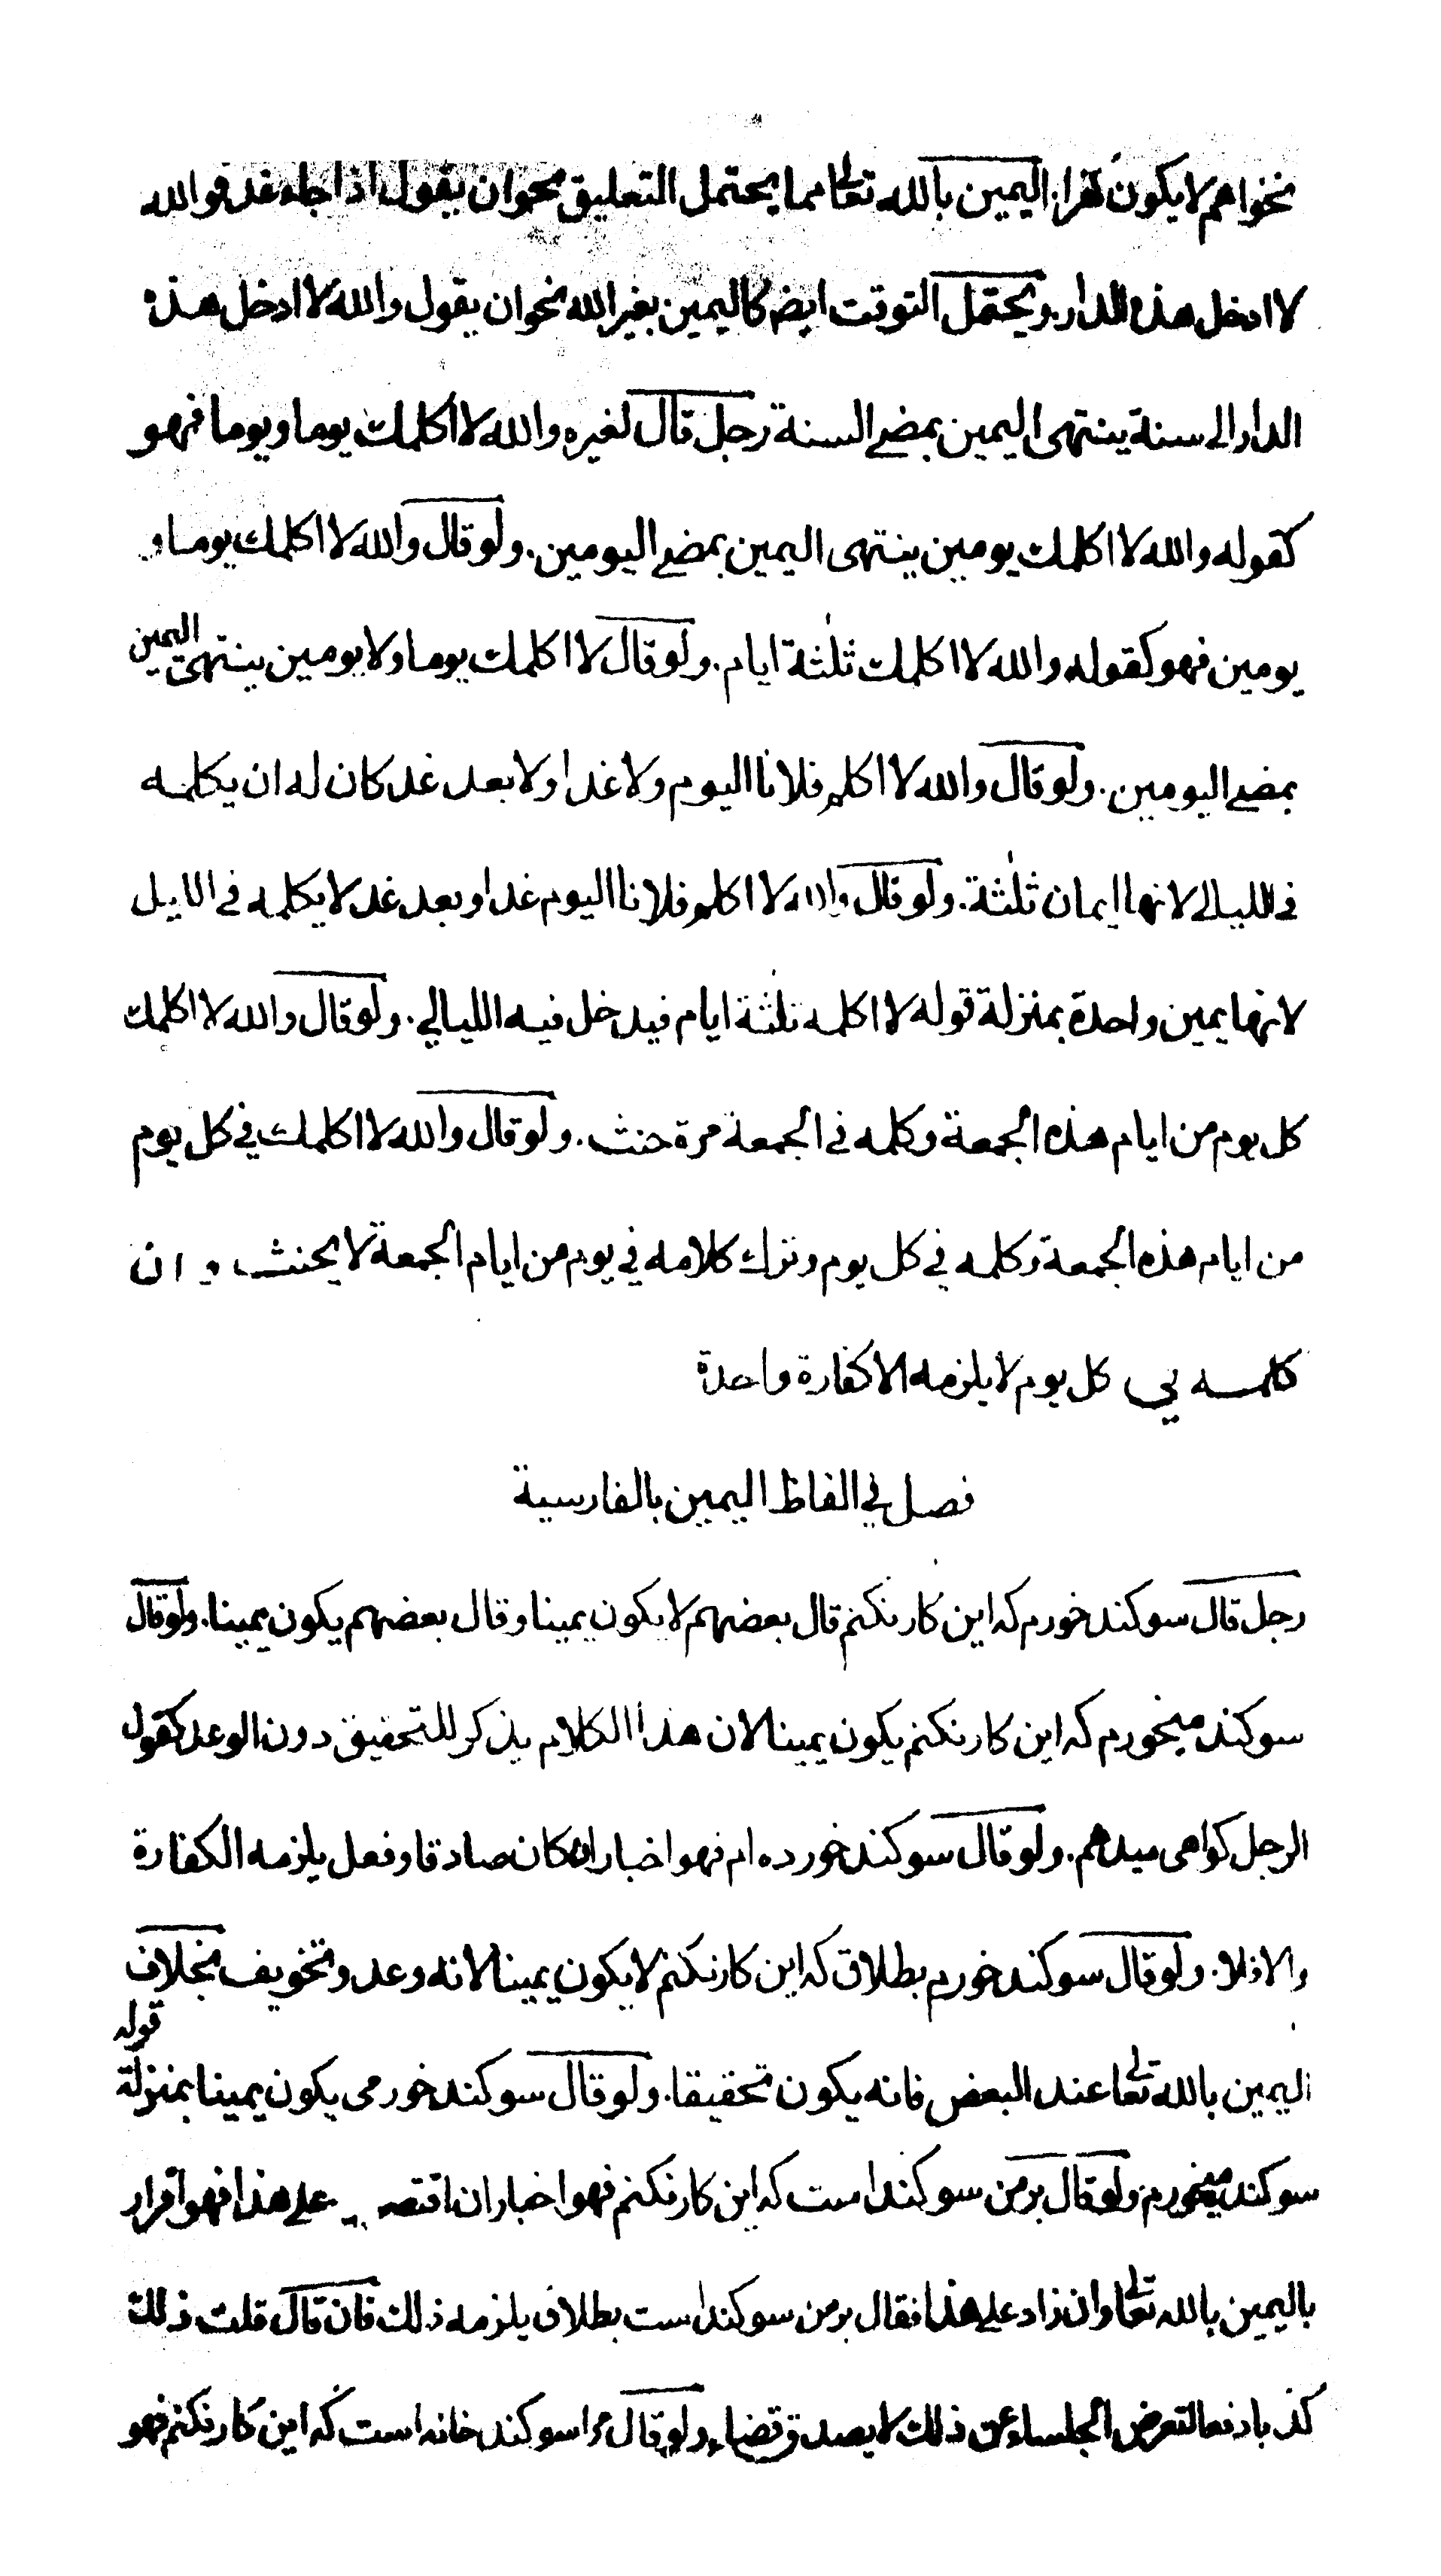 نخواهم لا يكون اليمين بالله تعالى مما يحتمل التعليق نحو ان يقول اذا جاء غد فوالله
لا ادخل هذه الدار ويحتمل التوقت ايض كاليمين بغير الله نحو ان يقول والله لا ادخل هذه
الدار الى سنة ينتهى اليمين بمضي السنة رجل قال لغيره والله لا اكلمك يوما ويوما فهو
كقوله والله لا اكلمك يومين ينتهى اليمين بمضي اليومين. ولو قال والله لا اكلمك يوما و
يومين فهو كقوله والله لا اكلمك ثلثة ايام. ولو قال لا اكلمك يوما ولا يومين ينتهى اليمين
بمضي اليومين. ولو قال والله لا اكلم فلانا اليوم ولا غدا ولا بعد غد كان له ان يكلمه
في الليالي لانها ايمان ثلثة. ولو قال والله لا اكلم فلانا اليوم غدا وبعد غد لا يكلمه في الليل
لانها يمين واحدة بمنزلة قوله لا اكلمه ثلثة ايام فيدخل فيه الليالي. ولو قال والله لا اكلمك
كل يوم من ايام هذه الجمعة وكلمه في الجمعة مرة حنث. ولو قال والله لا اكلمك في كل يوم
من ايام هذه الجمعة وكلمه في كل يوم وترك كلامه في يوم من ايام الجمعة لا يحنث وان
كلمه في كل يوم لا يلزمه الا كفارة واحدة
فصل في الفاظ اليمين بالفارسية
رجل قال سوكند خورم كه اين كار نكنم قال بعضهم لا يكون يمينا وقال بعضهم يكون يمينا. ولو قال
سوكند ميخورم كه اين كار نكنم يكون يمينا لان هذا الكلام يذكر للتحقيق دون الوعد كقول
الرجل كواهى ميدهم. ولو قال سوكند خورده ام فهو اخبار ان كان صادقا وفعل يلزمه الكفارة
والا فلا. ولو قال سوكند خورم بطلاق كه اين كار نكنم لا يكون يمينا لانه وعد وتخويف بخلاف
اليمين بالله تعالى عند البعض فانه يكون تحقيقا. ولو قال سوكند خورمى يكون يمينا بمنزلة قوله
سوكند ميخورم ولو قال بر من سوكند است كه اين كار نكنم فهو اخبار ان اقتصر على هذا فهو اقرار
باليمين بالله تعالى وان زاد على هذا فقال بر من سوكند است بطلاق يلزمه ذلك فان قال قلت ذلك
كذبا دفعا لتعرض الجلساء عن ذلك لا يصدق قضاء ولو قال مرا سوكند خانه است كه اين كار نكنم فهو